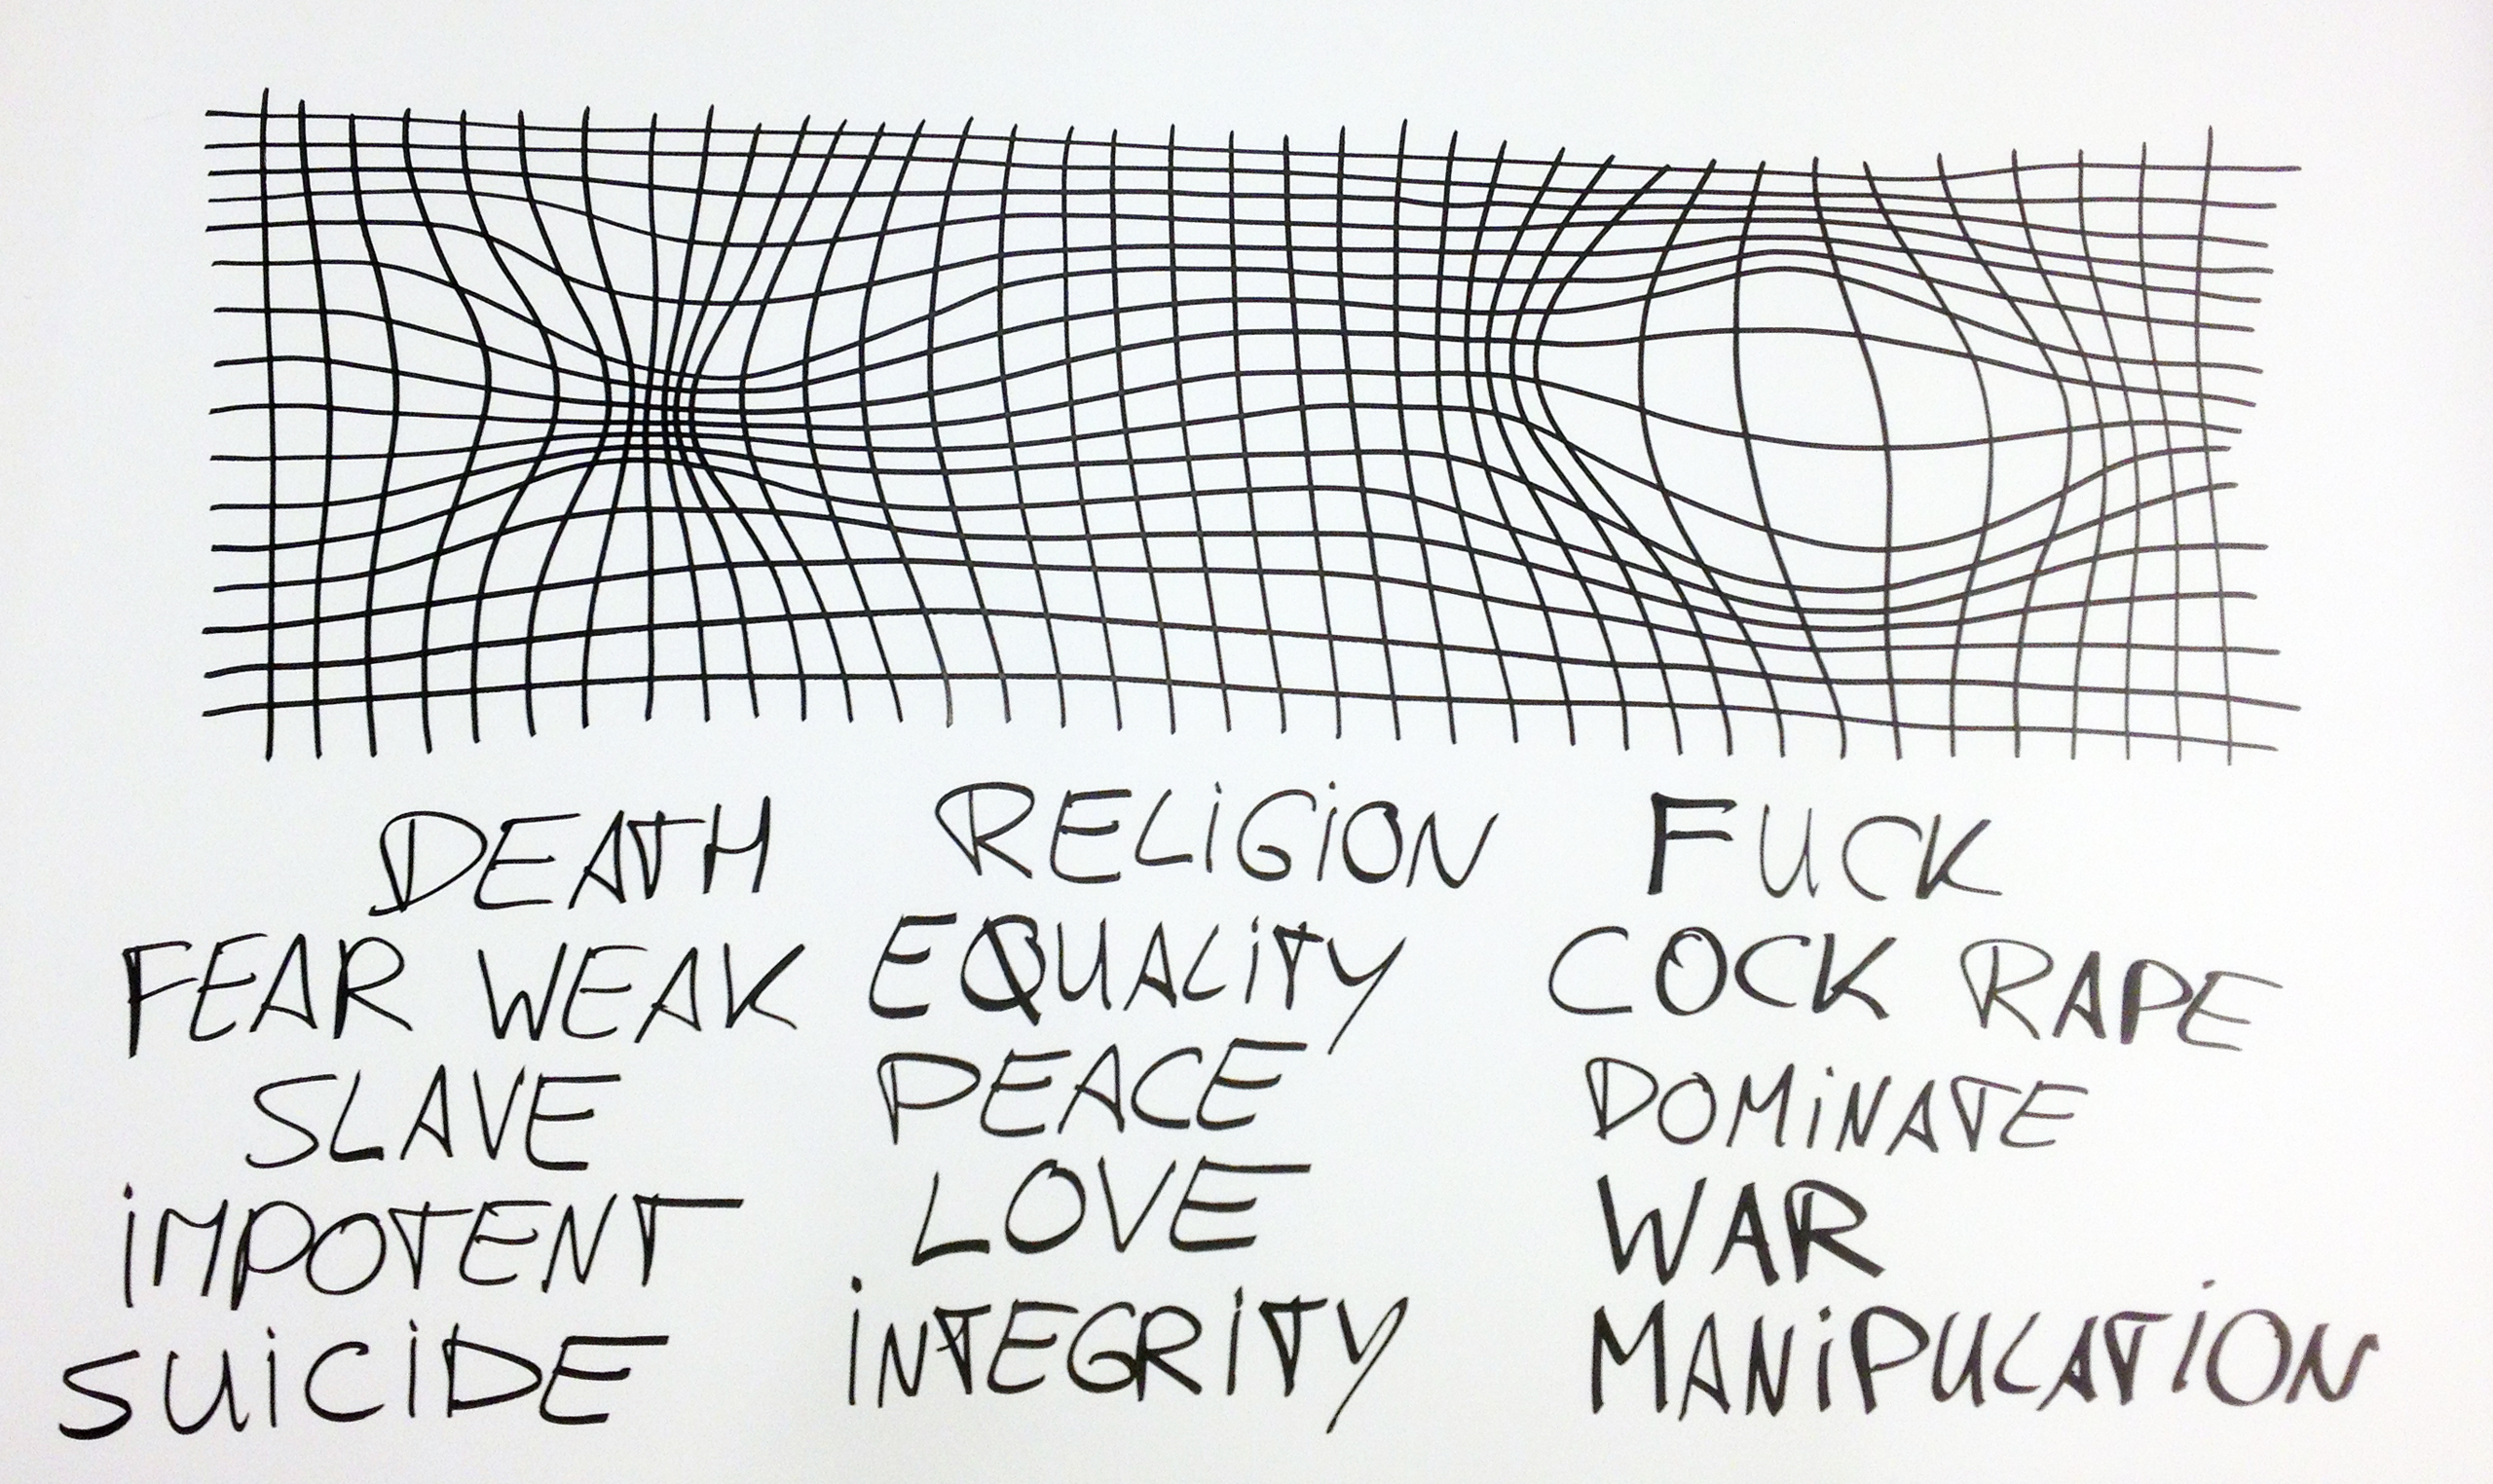 DEATH
FEAR WEAK
SLAVE
iMPOTENT
SUiCiDE
RELiGiON
EQUALiTY
PEACE
LOVE
iNTEGRiTY
FUCK
COCK RAPE
DOMiNATE
WAR
MANiPULATiON